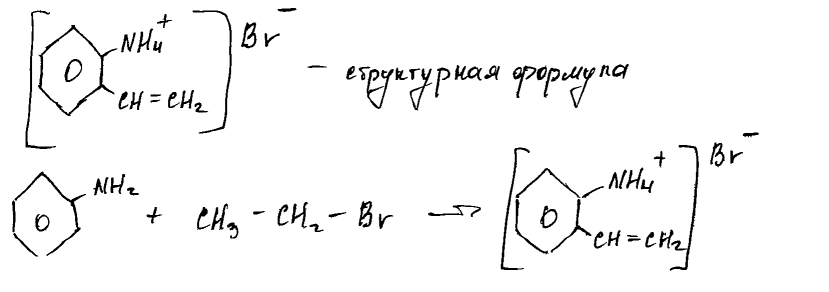 [ NH4+ CH=CH2 ] Br− – структурная формула
NH2 + CH3 – CH2 – Br → [ NH4+ CH=CH2 ] Br−